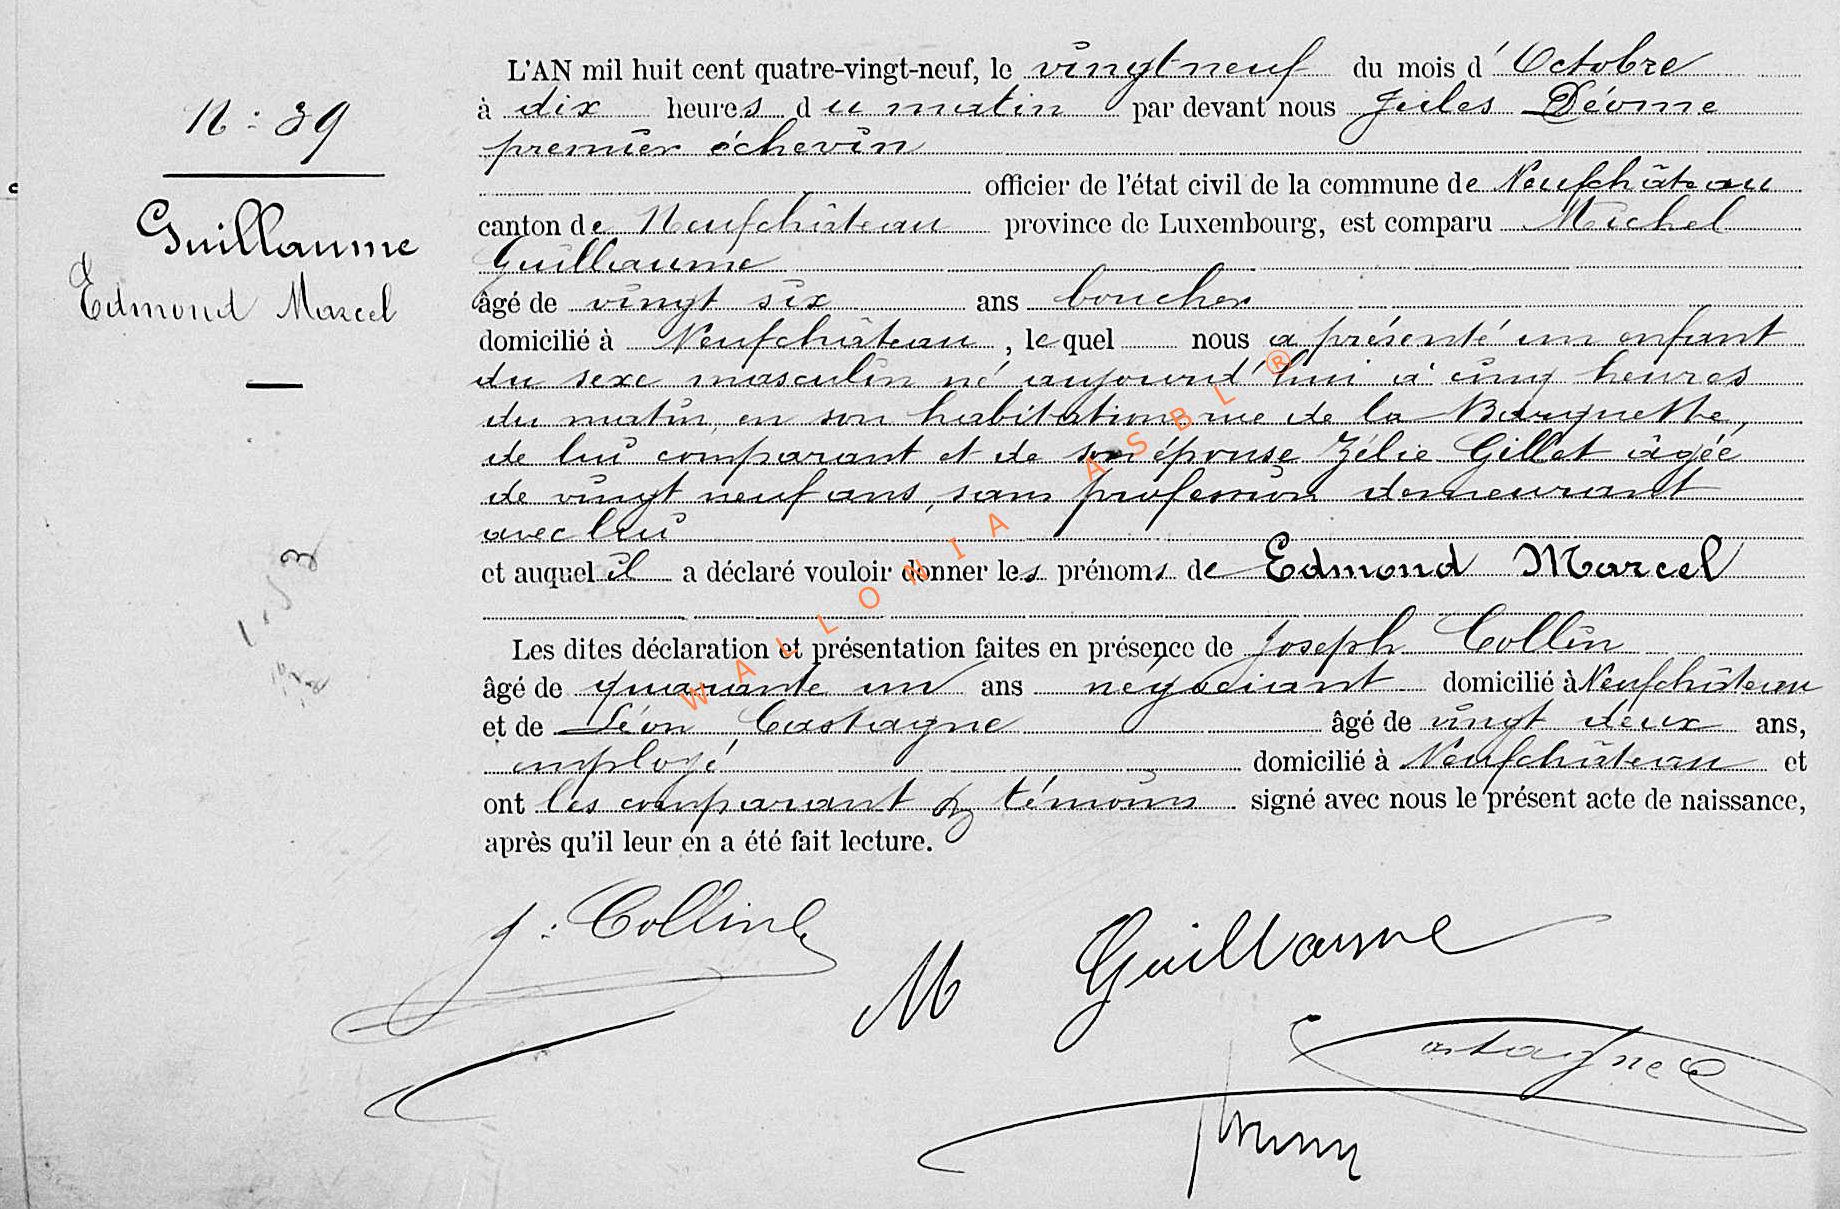 N: 39
Guillaume
Edmond Marcel
L'AN mil huit cent quatre-vingt-neuf, le vingt neuf du mois d'Octobre
à dix heures du matin par devant nous Jules Déome
premier échevin
officier de l'état civil de la commune de Neufchâteau
canton de Neufchâteau province de Luxembourg, est comparu Michel
Guillaume
âgé de vingt six ans boucher
domicilié à Neufchâteau, lequel nous a présenté un enfant
du sexe masculin né aujourd'hui à cinq heures
du matin, en son habitation rue de la Barquette,
de lui comparant et de son épouse Zélie Gillet âgée
de vingt neuf ans, sans profession demeurant
avec lui
et auquel il a déclaré vouloir donner les prénoms de Edmond Marcel
Les dites déclaration et présentation faites en présence de Joseph Collin
âgé de quarante un ans négociant domicilié à Neufchâteau
et de Léon Castagne âgé de vingt deux ans,
employé domicilié à Neufchâteau et
ont les comparant & témoins signé avec nous le présent acte de naissance,
après qu'il leur en a été fait lecture.
J: Collin
M Guillaume
Castagne
WALLONIA ASBL ®